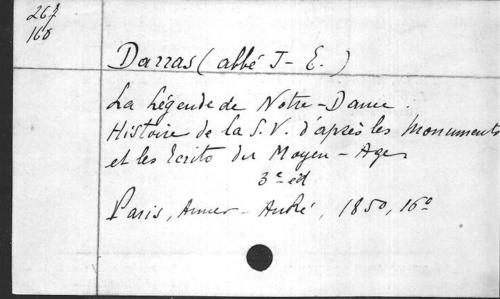 267
168
Darras (abbé J-E.)
La Légende de Notre-Dame.
Histoire de la S.V. d'après les Monuments
et les Ecrits du Moyen-Age
3e éd
Paris, André, 1850, 16o